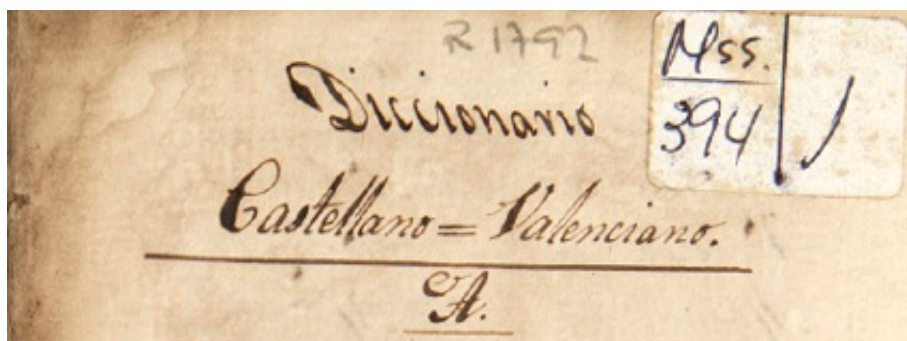 R 1792
Mss.
394
Diccionario
Castellano = Valenciano.
A.